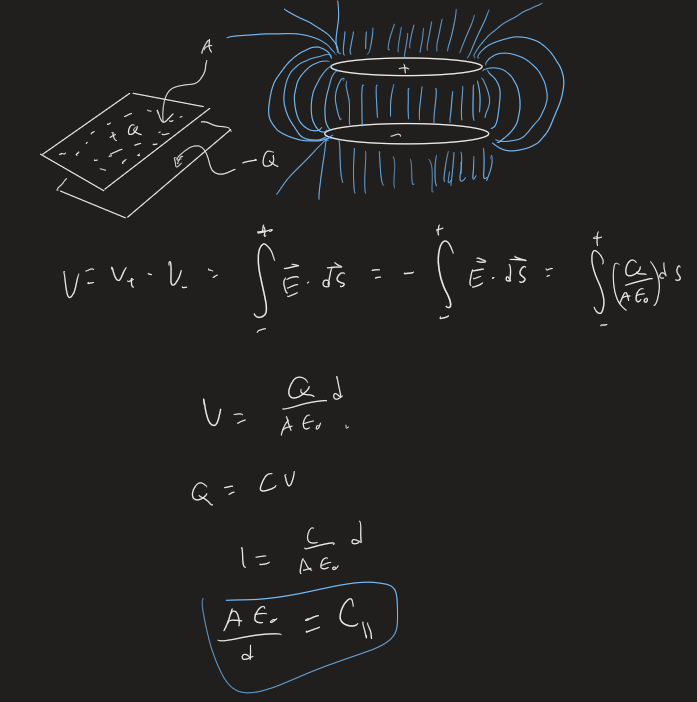 A
+ Q
- Q
+
-
V = V₊ - V₋ = ∫₋⁺ E⃗ · dS⃗ = - ∫₋⁺ E⃗ · dS⃗ = ∫₋⁺ (Q/Aε₀) dS
V = Q/Aε₀ d .
Q = CV
1 = C/Aε₀ d
Aε₀/d = C_∥